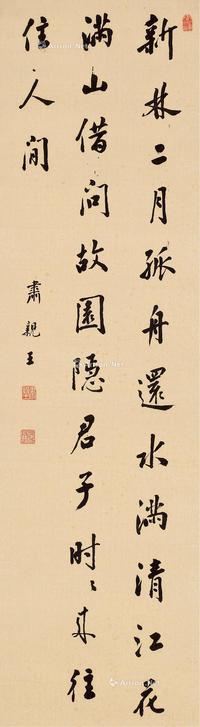 新林二月孤舟還水滿清江花
滿山借問故園隱君子时〻来往
住人間
肅親王